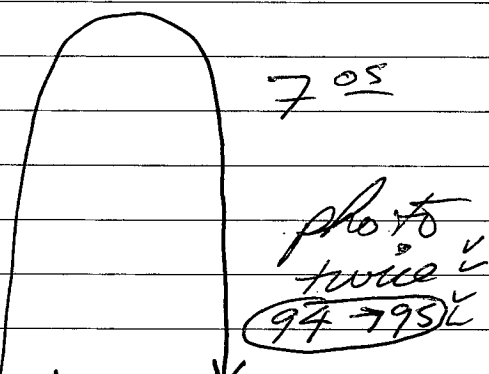 7 05
photo
twice
94 → 95